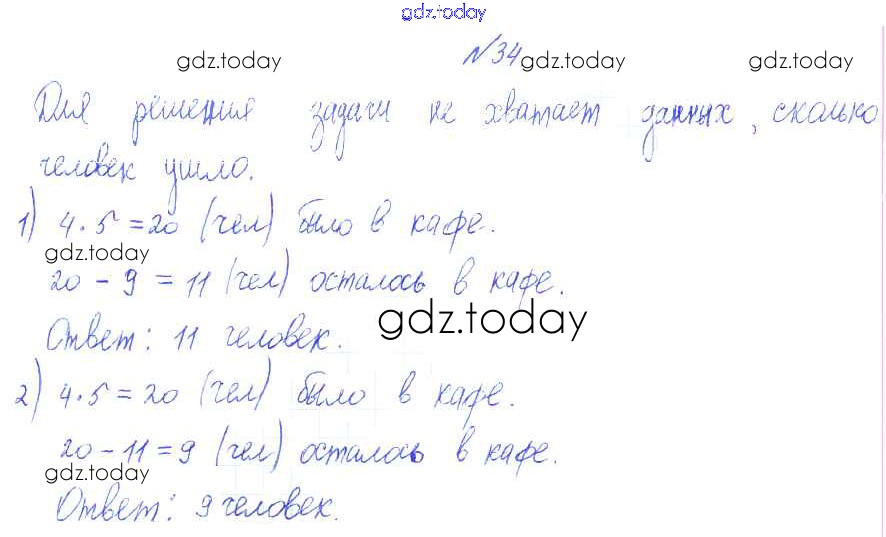 gdz.today
№34
gdz.today gdz.today gdz.today
Для решения задачи не хватает данных, сколько
человек ушло.
1) 4·5=20 (чел) было в кафе.
gdz.today
20 - 9 = 11 (чел) осталось в кафе.
gdz.today
Ответ: 11 человек.
2) 4·5=20 (чел) было в кафе.
20-11=9 (чел) осталось в кафе.
gdz.today
Ответ: 9 человек.